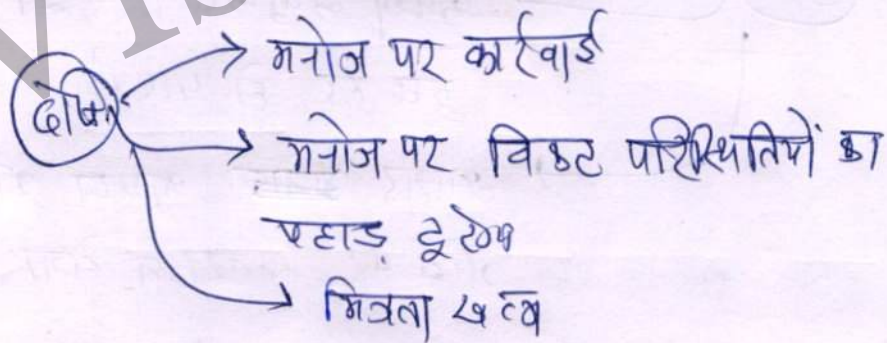 दोष
मनोज पर कार्रवाई
मनोज पर विकट परिस्थितियों का
पहाड़ टूटेगा
मित्रता खत्म